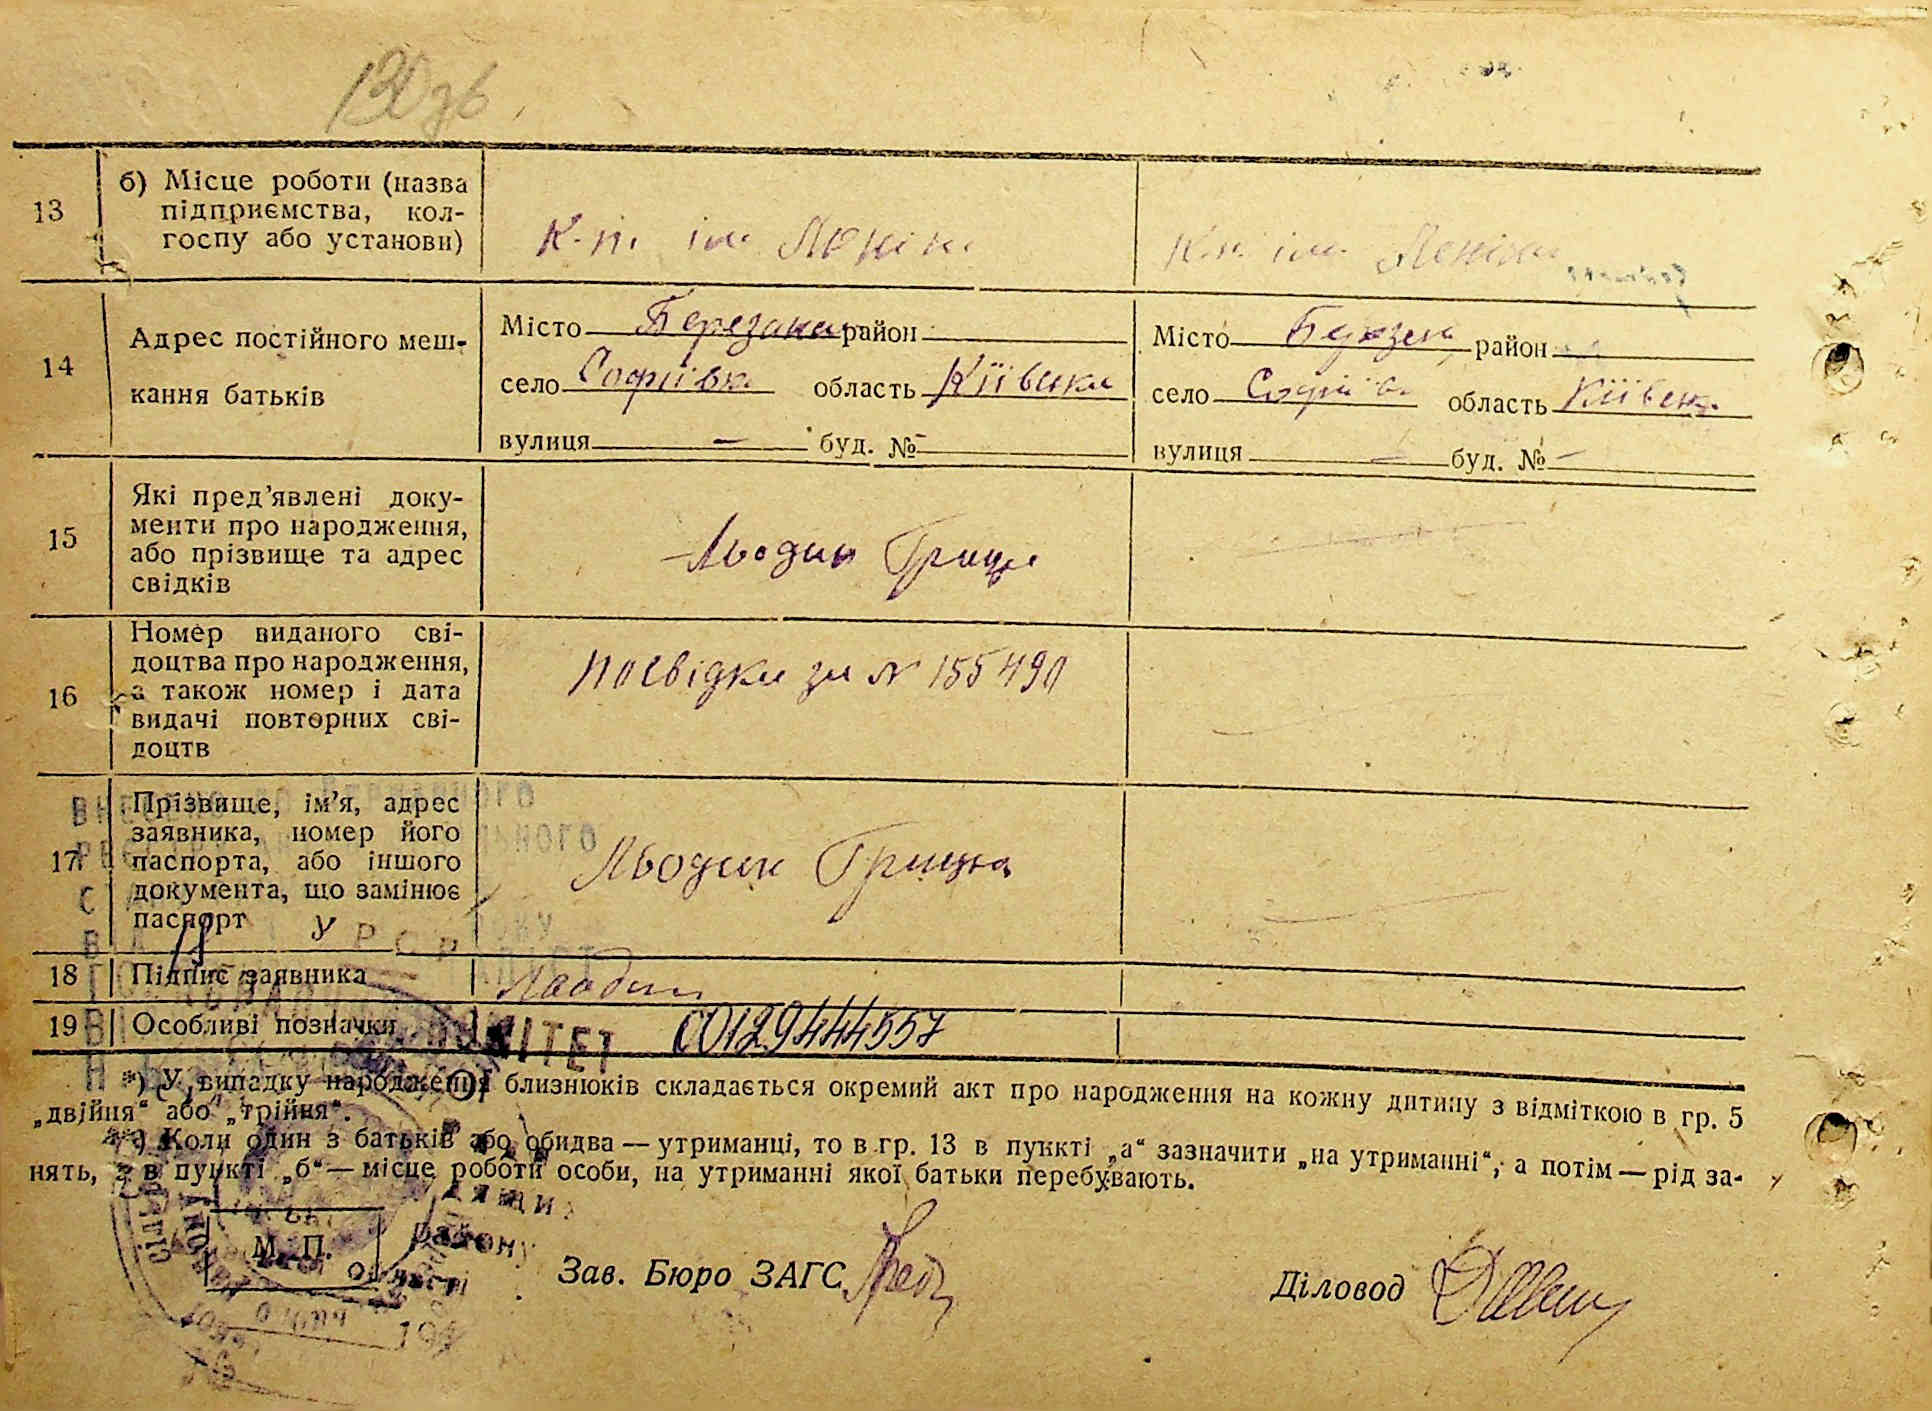 130 зв
13
б) Місце роботи (назва
підприємства, кол-
госпу або установи)
К-п. ім Леніна
К-п. ім. Леніна
14
Адрес постійного меш-
кання батьків
Місто Березань район
село Софіівка область Київська
вулиця — буд. № -
Місто район
село Софіівка область Київська
вулиця — буд. № -
15
Які пред’явлені доку-
менти про народження,
або прізвище та адрес
свідків
Льодин Гриць
16
Номер виданого сві-
доцтва про народження,
а також номер і дата
видачі повторних сві-
доцтв
посвідка за № 155490
17
Прізвище, ім’я, адрес
заявника, номер його
паспорта, або іншого
документа, що замінює
паспорт
Льодин Грицька
18
Підпис заявника
19
Особливі позначки
00129444557
*) У випадку народження близнюків складається окремий акт про народження на кожну дитину з відміткою в гр. 5
„двійня“ або „трійня“.
**) Коли один з батьків або обидва — утриманці, то в гр. 13 в пункті „а“ зазначити „на утриманні“, а потім — рід за-
нять, а в пункті „б“ — місце роботи особи, на утриманні якої батьки перебувають.
М. П.
району
області
Зав. Бюро ЗАГС
Діловод